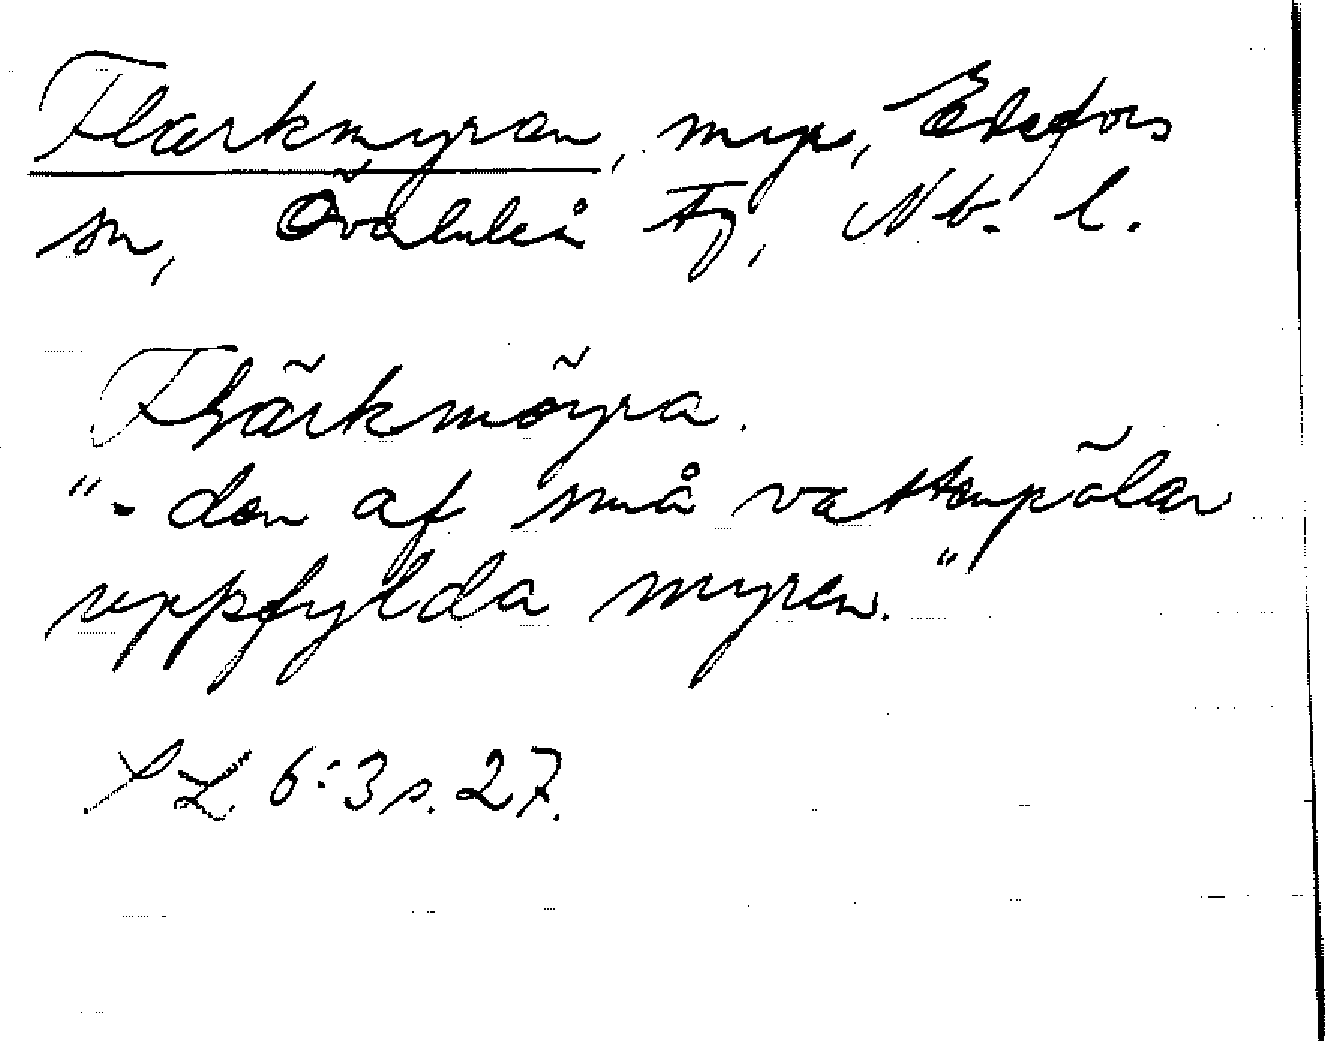 Flarkmyran, myr, Edefors
sn, Överluleå tg, Nb. l.
Flärkmöyra.
"- den af små vattenpölar
uppfylda myren."
SL 6:3 s. 27.